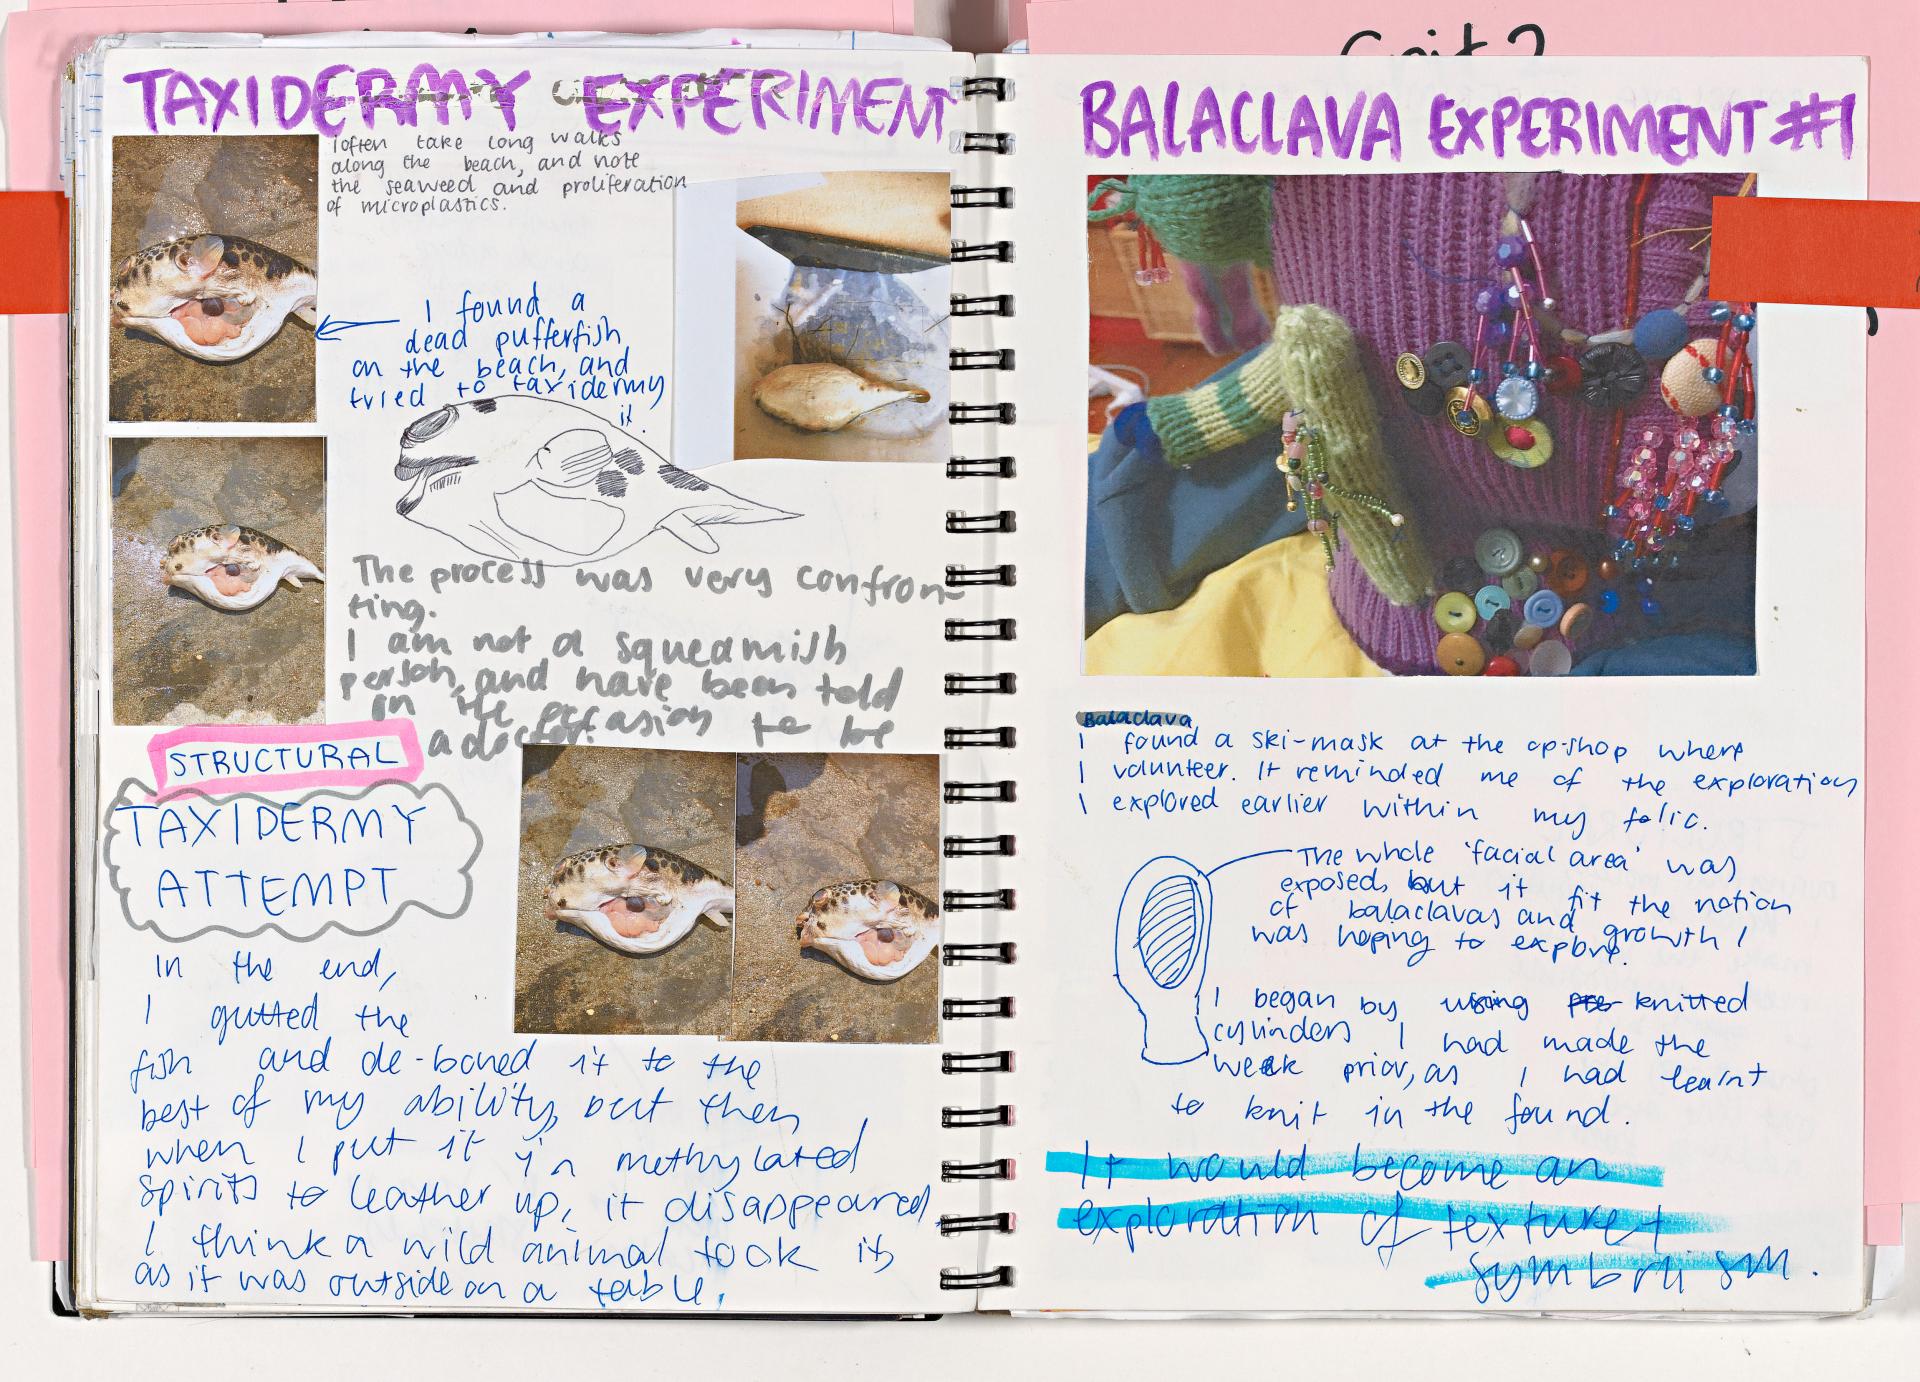 TAXIDERMY EXPERIMENT
I often take long walks
along the beach, and note
the seaweed and proliferation
of microplastics.
I found a
dead pufferfish
on the beach, and
tried to taxidermy
it.
The process was very confron-
ting.
I am not a squeamish
person, and have been told
on the occasion to be
a doctor.
STRUCTURAL
TAXIDERMY
ATTEMPT
In the end,
I gutted the
fish and de-boned it to the
best of my ability, but then
when I put it in methylated
spirits to leather up, it disappeared.
I think a wild animal took it,
as it was outside on a table.
Unit 2
BALACLAVA EXPERIMENT #1
Balaclava
I found a ski-mask at the op-shop where
I volunteer. It reminded me of the exploration
I explored earlier within my folio.
The whole 'facial area' was
exposed, but it fit the notion
of balaclavas and growth I
was hoping to explore.
I began by using knitted
cylinders I had made the
week prior, as I had learnt
to knit in the found.
It would become an
exploration of texture +
symbolism.